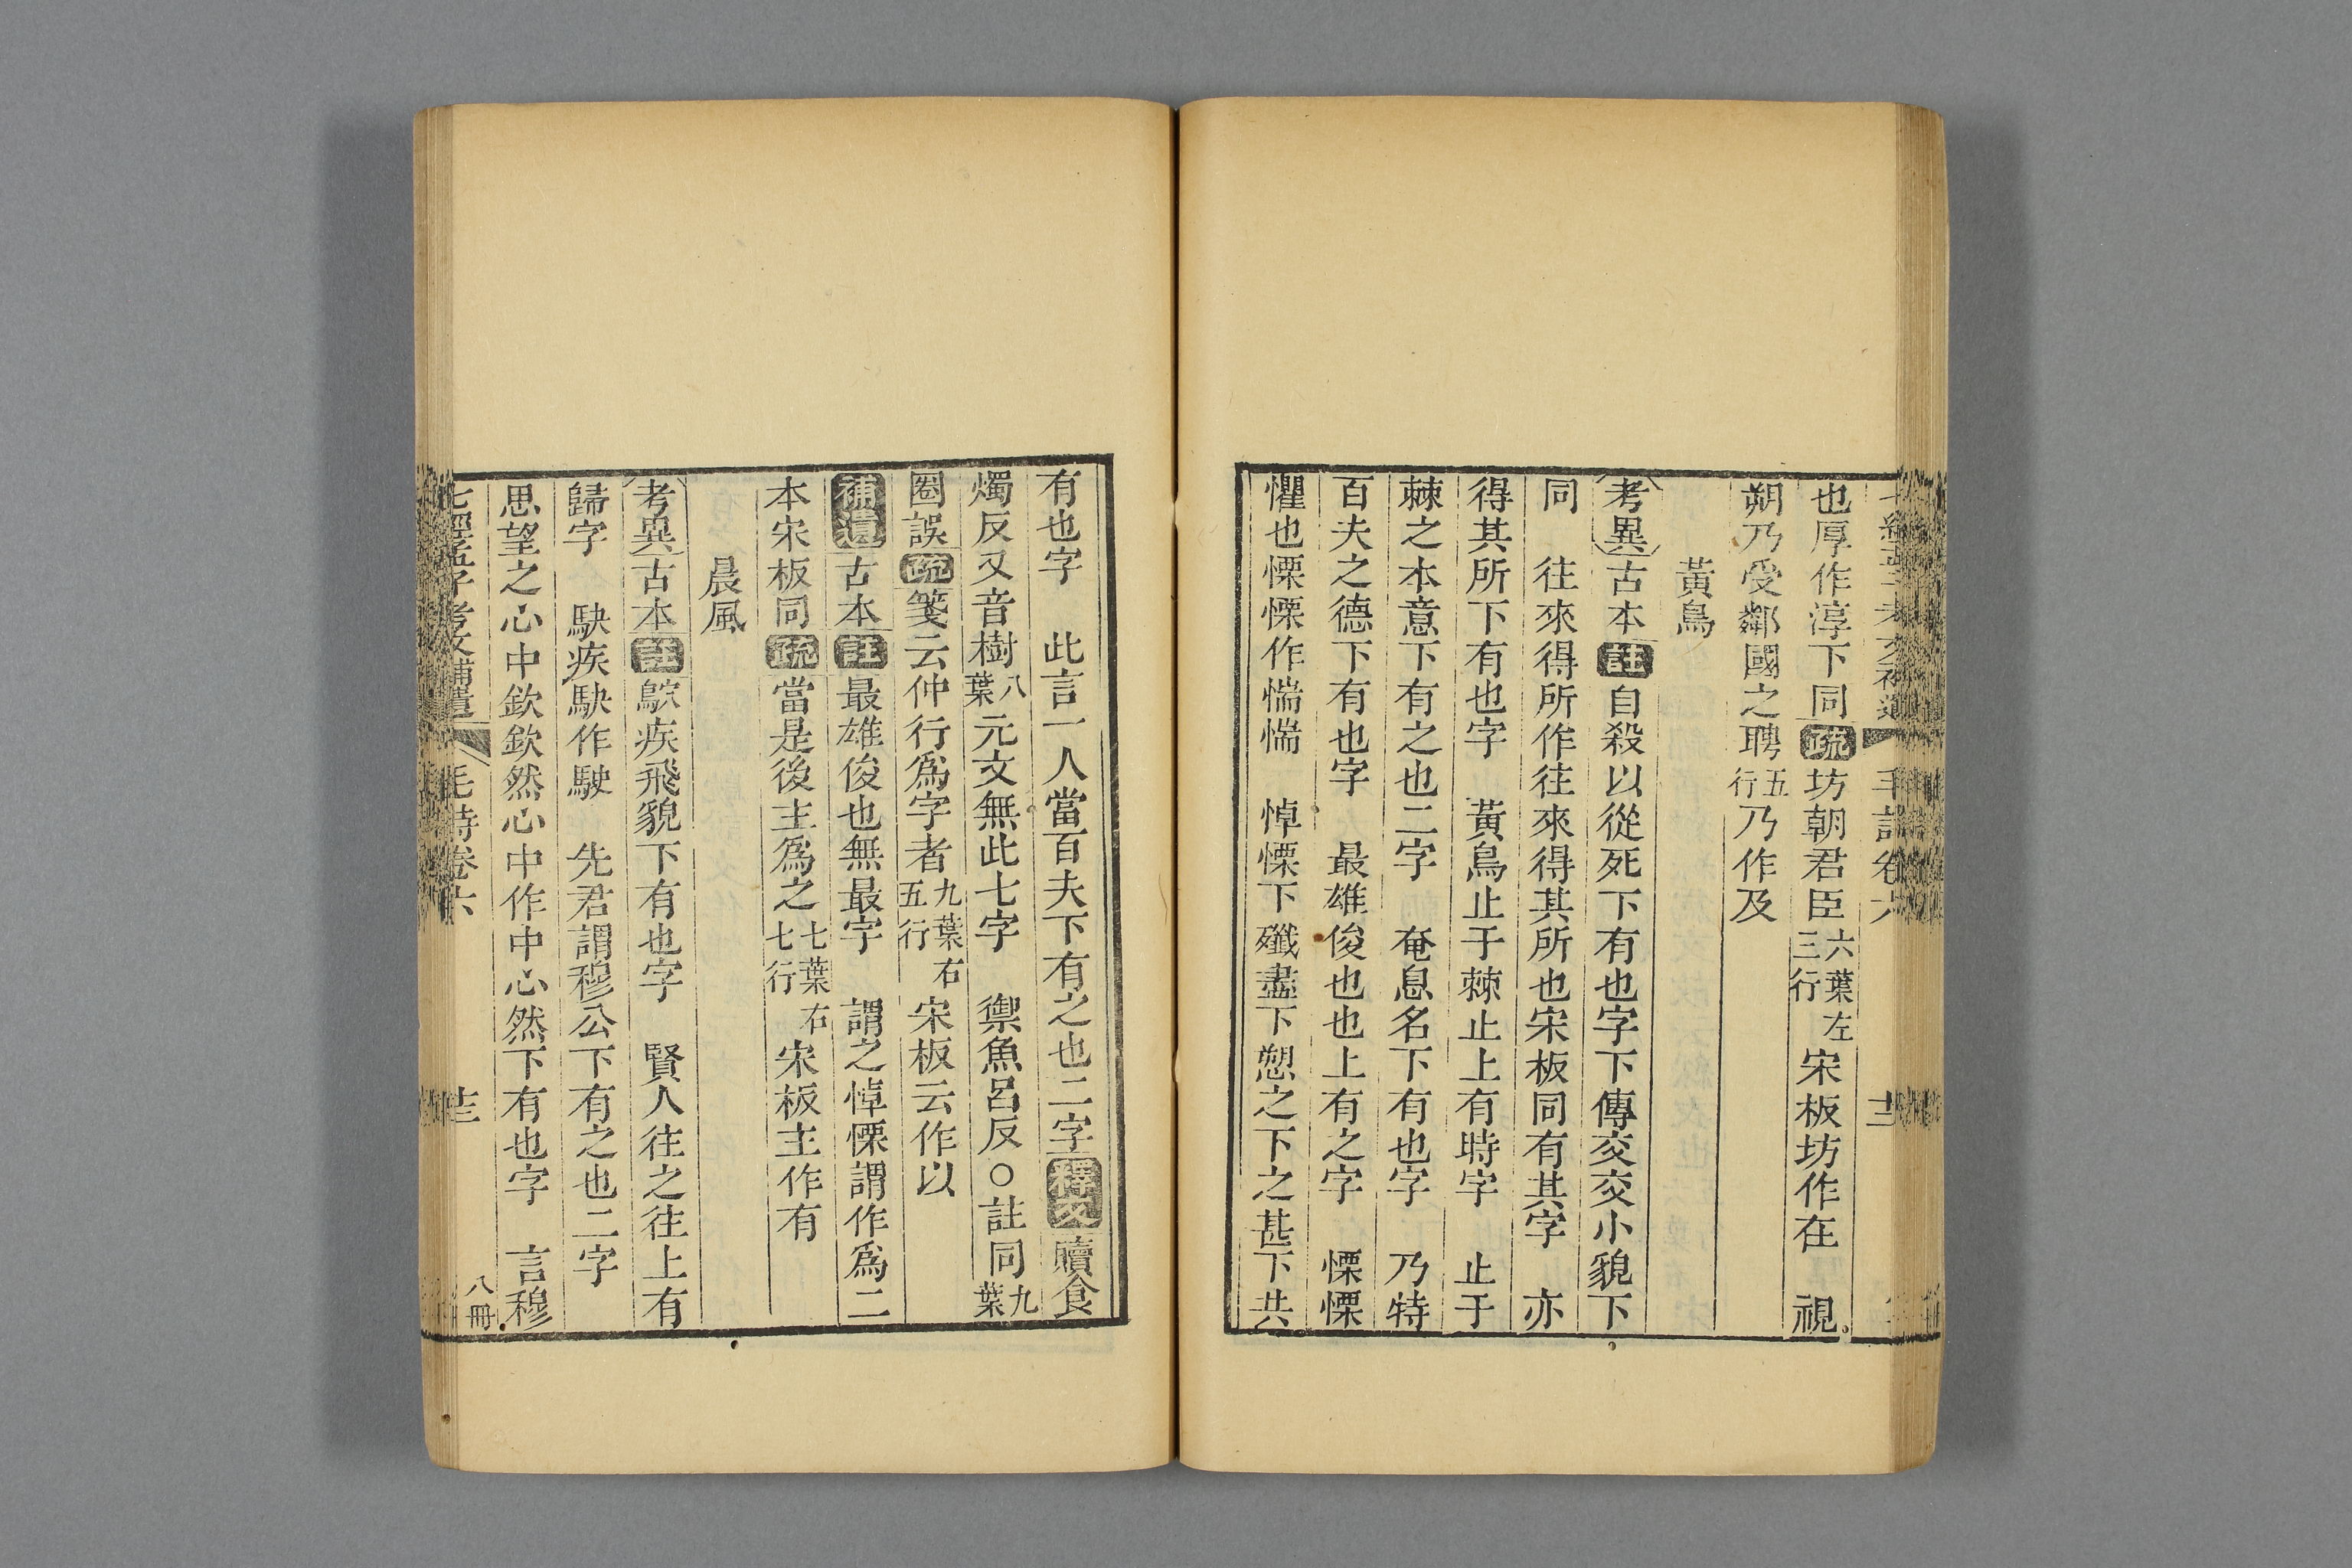 七經孟子考文補遺 毛詩卷六 十二
也厚作淳下同 疏 坊朝君臣六葉左三行宋板坊作在 視
朔乃受鄰國之聘五行乃作及
黃鳥
考異 古本 註 自殺以從死下有也字下傳交交小貌下
同 往來得所作往來得其所也宋板同有其字 亦
得其所下有也字 黃鳥止于棘止上有時字 止于
棘之本意下有之也二字 奄息名下有也字 乃特
百夫之德下有也字 最雄俊也也上有之字 慄慄
懼也慄慄作惴惴 悼慄下 殲盡下愬之下之甚下共
有也字 此言一人當百夫下有之也二字 釋文 贖食
燭反又音樹八葉元文無此七字 禦魚呂反○註同九葉
圈誤 疏 箋云仲行爲字者九葉右五行宋板云作以
補遺 古本 註 最雄俊也無最字 謂之悼慄謂作爲二
本宋板同 疏 當是後主爲之七葉右七行宋板主作有
晨風
考異 古本 註 鴥疾飛貌下有也字 賢人往之往上有
歸字 駃疾駃作駛 先君謂穆公下有之也二字
思望之心中欽欽然心中作中心然下有也字 言穆
七經孟子考文補遺 毛詩卷六 十三 八冊